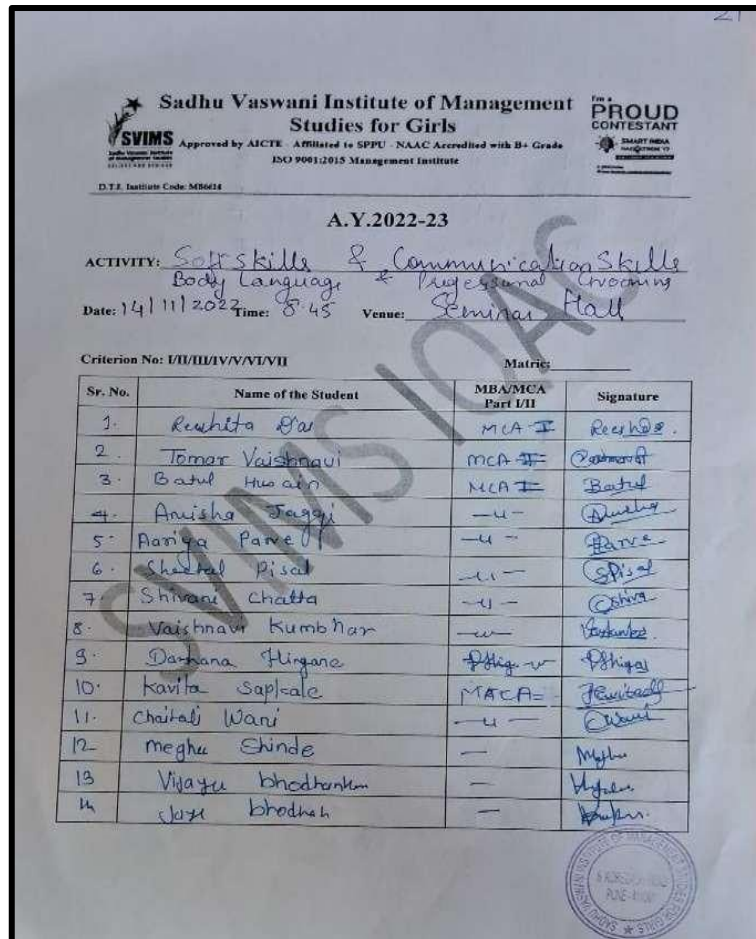 21
Sadhu Vaswani Institute of Management
Studies for Girls
SVIMS
Approved by AICTE - Affiliated to SPPU - NAAC Accredited with B+ Grade
ISO 9001:2015 Management Institute
I'm a
PROUD
CONTESTANT
SMART INDIA
D.T.E. Institute Code: MB6614
A.Y.2022-23
ACTIVITY: Soft skills & Communication Skills
Body Language & Professional Grooming
Date: 14/11/2022 Time: 8.45 Venue: Seminar Hall
Criterion No: I/II/III/IV/V/VI/VII Matric:
Sr. No. Name of the Student MBA/MCA Part I/II Signature
1. MCA-I
2. Tomar Vaishnavi MCA-I
3. Batul Husain MCA I Batul
4. Anisha Jaggi -u-
5. Parve -u- Parve
6. Sheetal Pisal -u- SPisal
7. Shivani Chatta -u- Shiva
8. Vaishnavi Kumbhar -u-
9. Darshana Hingane
10. Kavita Sapkale MACA=
11. Chaitali Wani -u- CWani
12 Megha Shinde -
13 Vijaya -
14 -
SVIMS IQAC
SADHU VASWANI INSTITUTE OF MANAGEMENT STUDIES FOR GIRLS